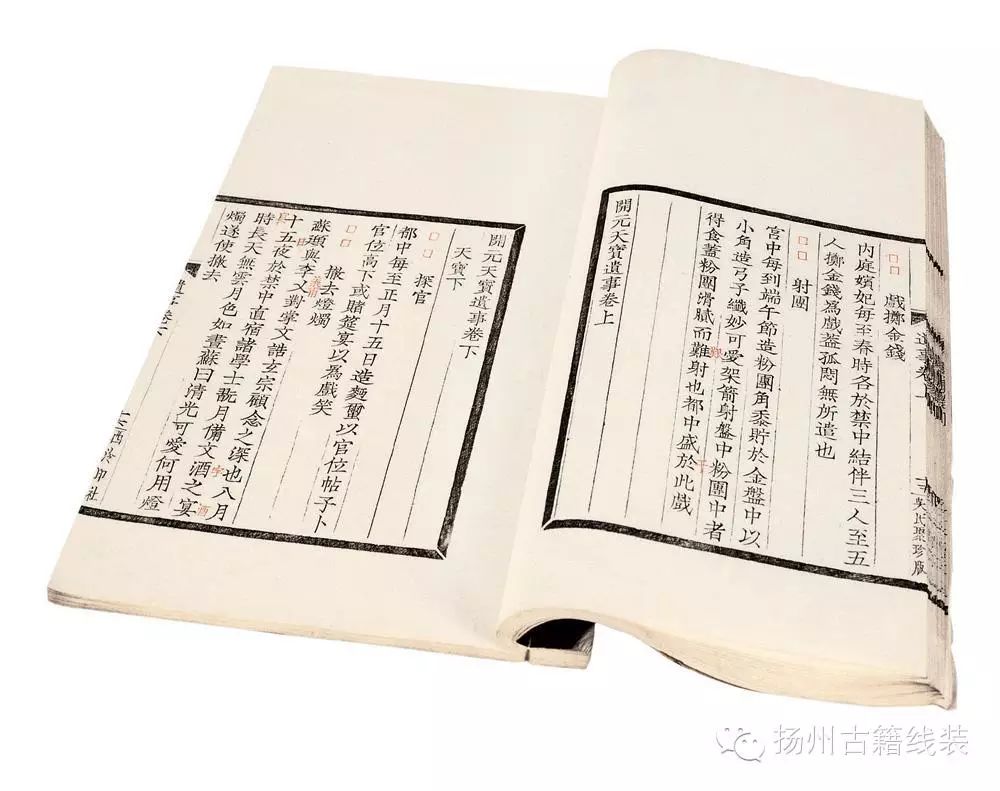 戲擲金錢
内庭嬪妃每至春時各於禁中結伴三人至五
人擲金錢爲戲蓋孤悶無所遣也
射團
宮中每到端午節造粉團角黍貯於金盤中以
小角造弓子纖妙可愛架箭射盤中粉團中者
得食蓋粉團滑膩而難射也都中盛於此戲
開元天寶遺事卷上
吳氏聚珍版
開元天寶遺事卷下
天寶下
探官
都中每至正月十五日造麵蠒以官位帖子卜
官位高下或賭筵宴以爲戲笑
撤去燈燭
蘇頲與李乂對掌文誥玄宗顧念之深也八月
十五夜於禁中直宿諸學士翫月備文酒之宴
時長天無雲月色如晝蘇曰清光可愛何用燈
燭遂使撤去
遺事卷下
西泠印社
扬州古籍线装